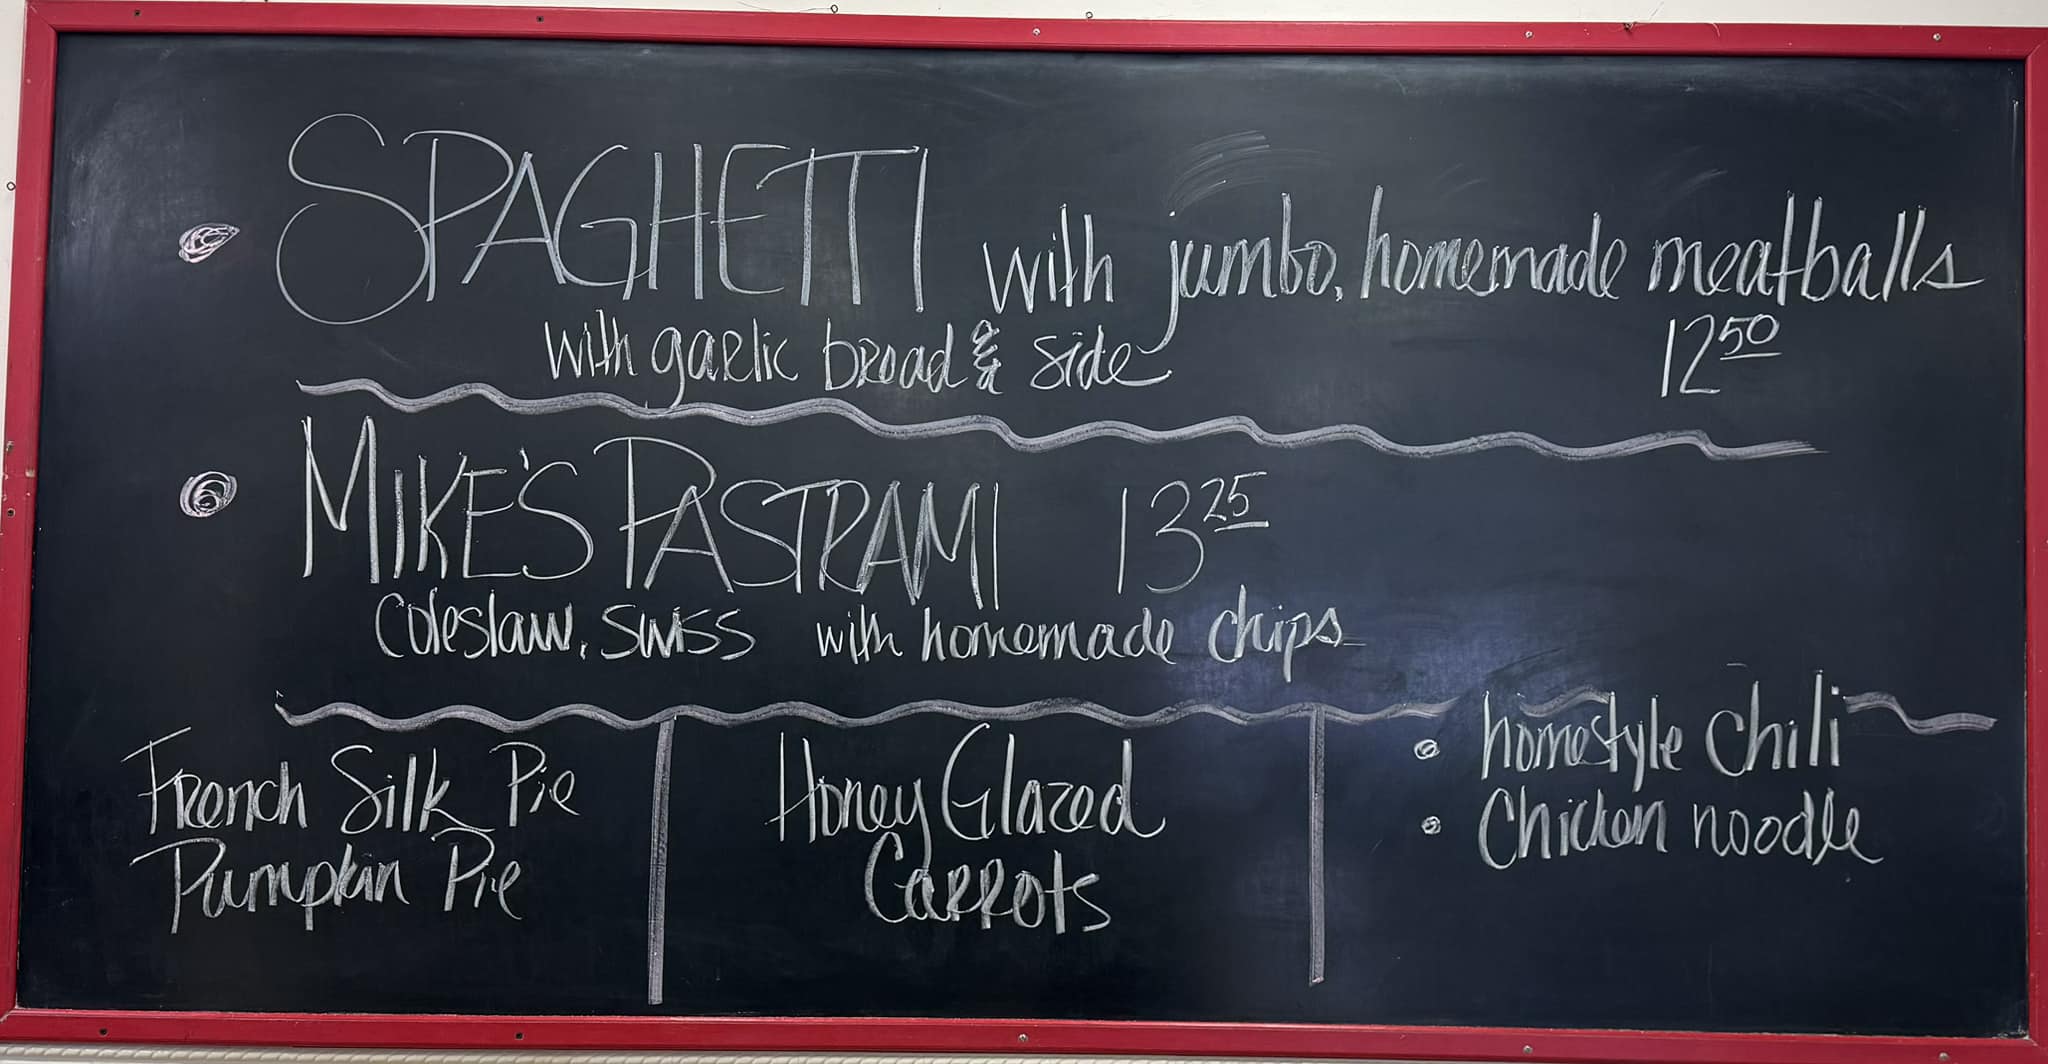 SPAGHETTI with jumbo, homemade meatballs
with garlic bread & side 12 50
MIKE'S PASTRAMI 13 25
Coleslaw, swiss with homemade chips
French Silk Pie
Pumpkin Pie
Honey Glazed
Carrots
• homestyle chili
• Chicken noodle